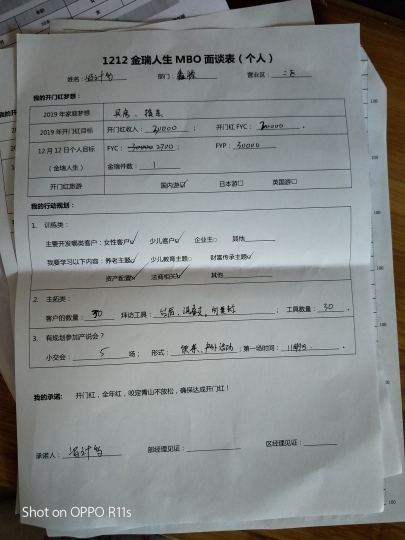 1212 金瑞人生 MBO 面谈表（个人）
姓名： 部门： 营业区：
我的开门红梦想：
2019 年家庭梦想 买房、
2019 年开门红目标 开门红收入： 开门红 FYC：
12 月 12 日个人目标 FYC： 2700； FYP： 30000
（金瑞人生） 金瑞件数： 1
开门红旅游 国内游☑ 日本游□ 英国游□
我的行动规划：
1. 训练类：
主要开发哪类客户：女性客户☑ 少儿客户☑ 企业主□ 其他
我要学习以下内容：养老主题☑ 少儿教育主题□ 财富传承主题☑
资产配置☑ 法商相关☑ 其他
2. 主拓类：
客户的数量： 30 拜访工具： 台历、 ；工具数量： 30 。
3. 有规划参加产说会？
小交会： 5 场； 形式： ；第一场时间： 。
我的承诺： 开门红，全年红，咬定青山不放松，确保达成开门红！
承诺人： 部经理见证： 区经理见证：
Shot on OPPO R11s